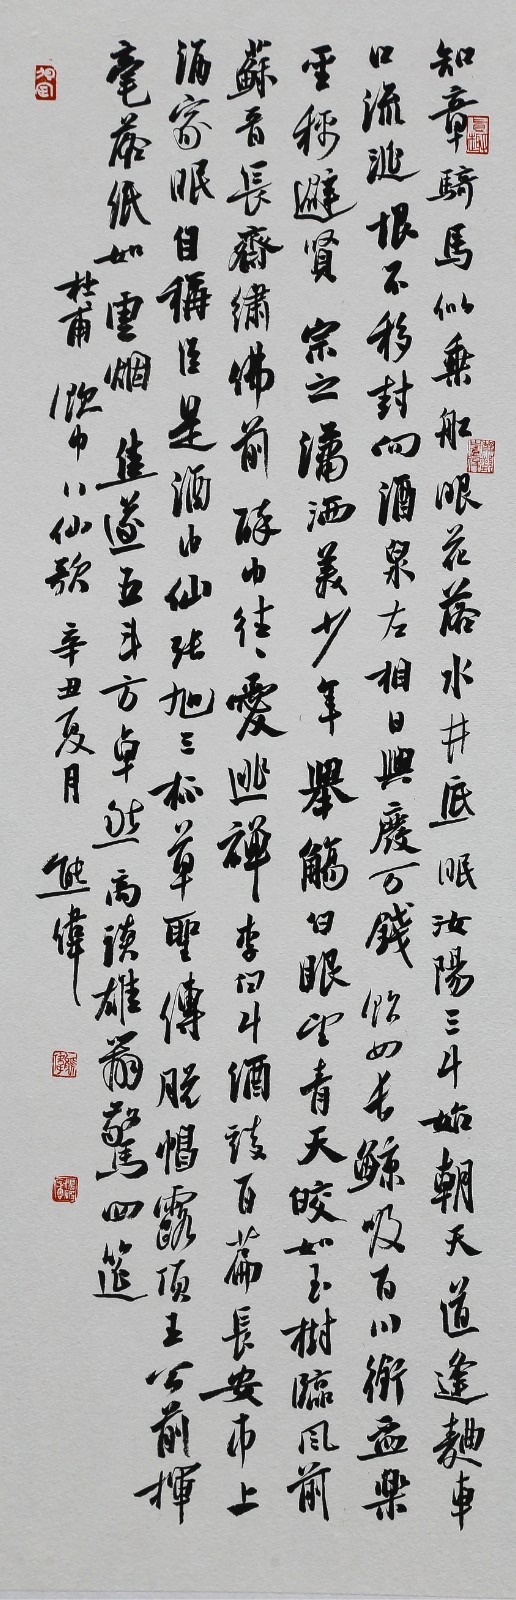 知章騎馬似乘船眼花落水井底眠汝陽三斗始朝天道逢麯車
口流涎恨不移封向酒泉左相日興廢万錢飲如长鯨吸百川銜盃樂
聖稱避賢宗之瀟洒美少年舉觴白眼望青天皎如玉樹臨風前
蘇晉長齋繡佛前醉中往々愛逃禪李白斗酒詩百篇長安市上
酒家眠自稱臣是酒中仙張旭三杯草聖傳脱帽露頂王公前揮
毫落紙如雲烟焦遂五斗方卓然高談雄辯驚四筵
杜甫飲中八仙歌 辛丑夏月 熊偉